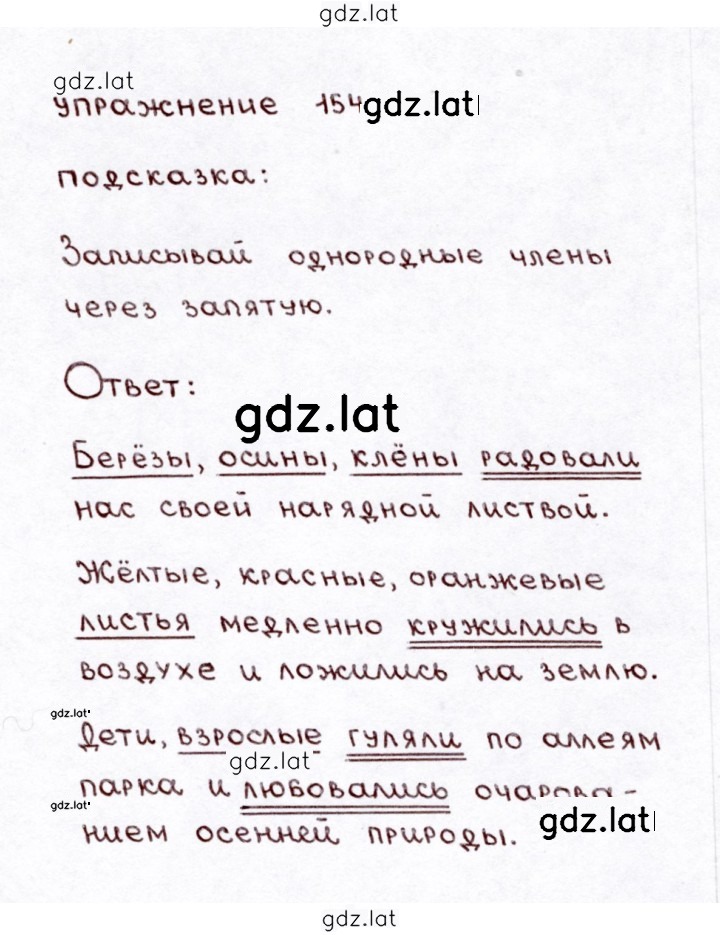 gdz.lat
gdz.lat
упражнение 154
gdz.lat
подсказка:
Записывай однородные члены
через запятую.
Ответ:
gdz.lat
Берёзы, осины, клёны радовали
нас своей нарядной листвой.
Жёлтые, красные, оранжевые
листья медленно кружились в
воздухе и ложились на землю.
gdz.lat
Дети, взрослые гуляли по аллеям
gdz.lat
парка и любовались
gdz.lat
нием осенней природы.
gdz.lat
gdz.lat